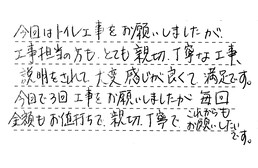 今回はトイレ工事をお願いしましたが、
工事担当の方も、とても親切、丁寧な工事、
説明をされて、大変感じが良くて満足です。
今回で3回工事をお願いしましたが 毎回
金額もお値打ちで、親切、丁寧で これからも
お願いしたい
です。